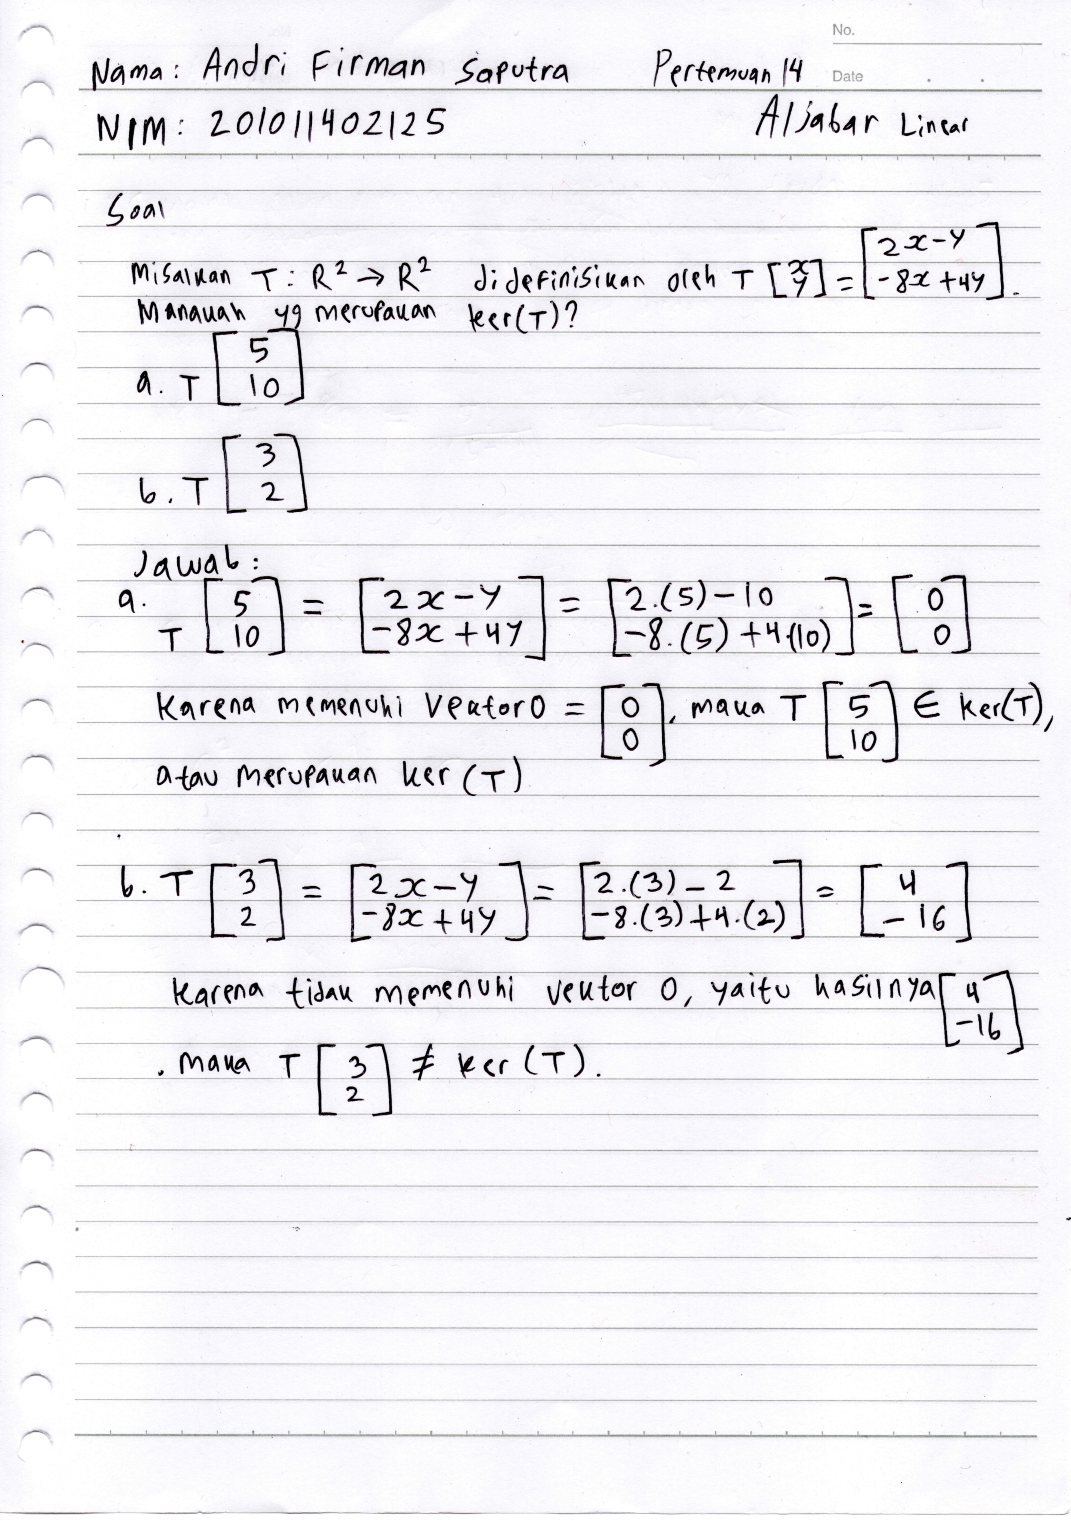 No.
Nama: Andri Firman Saputra Pertemuan 14 Date
NIM: 201011402125 Aljabar Linear
Soal
Misalkan T: R² → R² didefinisikan oleh T [x y] = [2x-y -8x+4y].
Manakah yg merupakan ker(T)?
a. T [5 10]
b. T [3 2]
Jawab:
a. T [5 10] = [2x-y -8x+4y] = [2.(5)-10 -8.(5)+4(10)] = [0 0]
Karena memenuhi Vektor 0 = [0 0], maka T [5 10] ∈ ker(T),
atau merupakan ker (T)
b. T [3 2] = [2x-y -8x+4y] = [2.(3)-2 -8.(3)+4.(2)] = [4 -16]
Karena tidak memenuhi vektor 0, yaitu hasilnya [4 -16]
. maka T [3 2] ≠ ker (T).